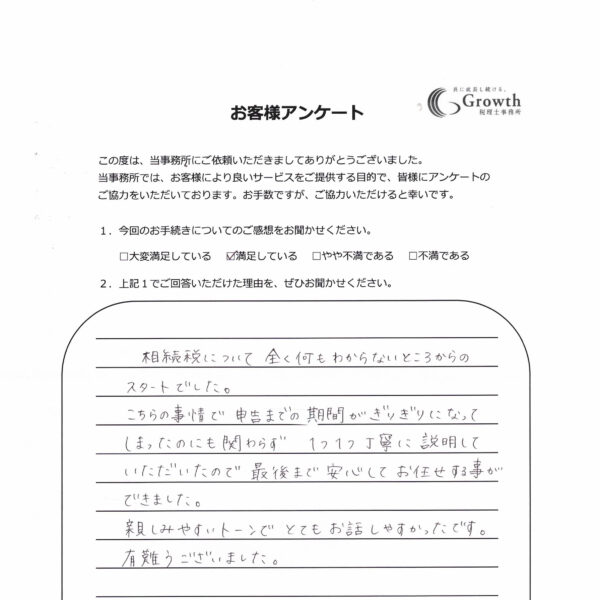 共に成長し続ける。
Growth
税理士事務所
お客様アンケート
この度は、当事務所にご依頼いただきましてありがとうございました。
当事務所では、お客様により良いサービスをご提供する目的で、皆様にアンケートの
ご協力をいただいております。お手数ですが、ご協力いただけると幸いです。
１．今回のお手続きについてのご感想をお聞かせください。
□大変満足している ☑満足している □やや不満である □不満である
２．上記１でご回答いただけた理由を、ぜひお聞かせください。
相続税について 全く何もわからないところからの
スタートでした。
こちらの事情で 申告までの 期間がぎりぎりになって
しまったのにも関わらず 1つ1つ丁寧に説明して
いただいたので 最後まで安心してお任せする事が
できました。
親しみやすいトーンで とてもお話しやすかったです。
有難うございました。